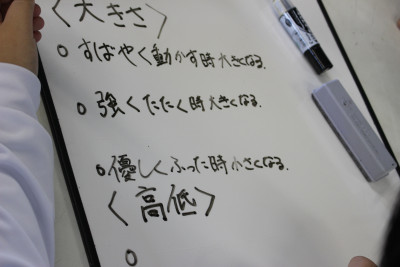 〈大きさ
○ すばやく動かす時大きくなる.
○ 強くたたく時大きくなる.
○ 優しくふった時小さくなる.
〈高低〉
○